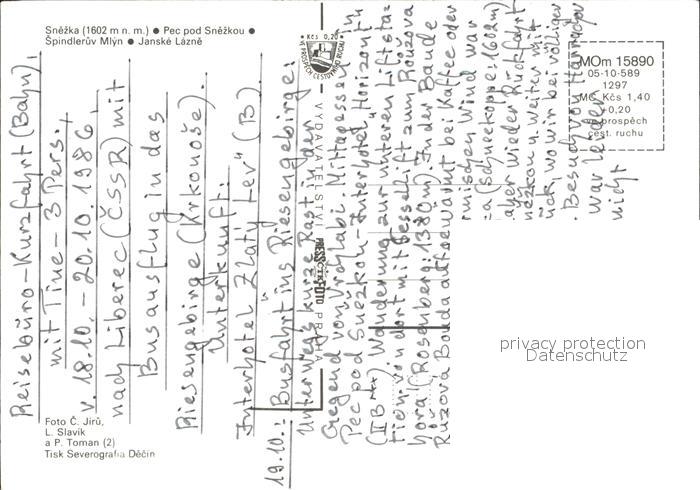 Sněžka (1602 m n. m.) ● Pec pod Sněžkou ●
Špindlerův Mlýn ● Janské Lázně
Kčs 0,20
VE PROSPĚCH CESTOVNÍHO RUCHU
VYDAVATELSTVÍ PRESSFOTO PRAHA
MOm 15890
05-10-589
1297
MC Kčs 1,40
+0,20
ve prospěch
cest. ruchu
Reisebüro-Kurzfahrt (Bahn),
mit Tine - 3 Pers.,
v. 18.10. - 20.10.1986
nach Liberec (ČSSR) mit
Busausflug in das
Riesengebirge (Krkonoše).
Unterkunft:
Interhotel "Zlatý Lev" (B).
19.10.: Busfahrt ins Riesengebirge.
Unterwegs kurze Rast in der
Gegend von Vrchlabí. Mittagessen in
Pec pod Sněžkou - Interhotel "Horizont"
(II B). Wanderung zur unteren Liftsta-
tion. Von dort mit Sessellift zum Růžová
hora (Rosenberg; 1380 m). In der Baude
Růžová Bouda aufgewärmt bei Kaffee oder
mischen Wind war
ka (Schneekoppe; 1602 m)
aher wieder Rückfahrt
něžkou u. weiter mit
ück, wo wir bei völliger
. Besuch von Harrachov
war leider
nicht
Foto Č. Jirů,
L. Slavík
a P. Toman (2)
Tisk Severografia Děčín
privacy protection
Datenschutz